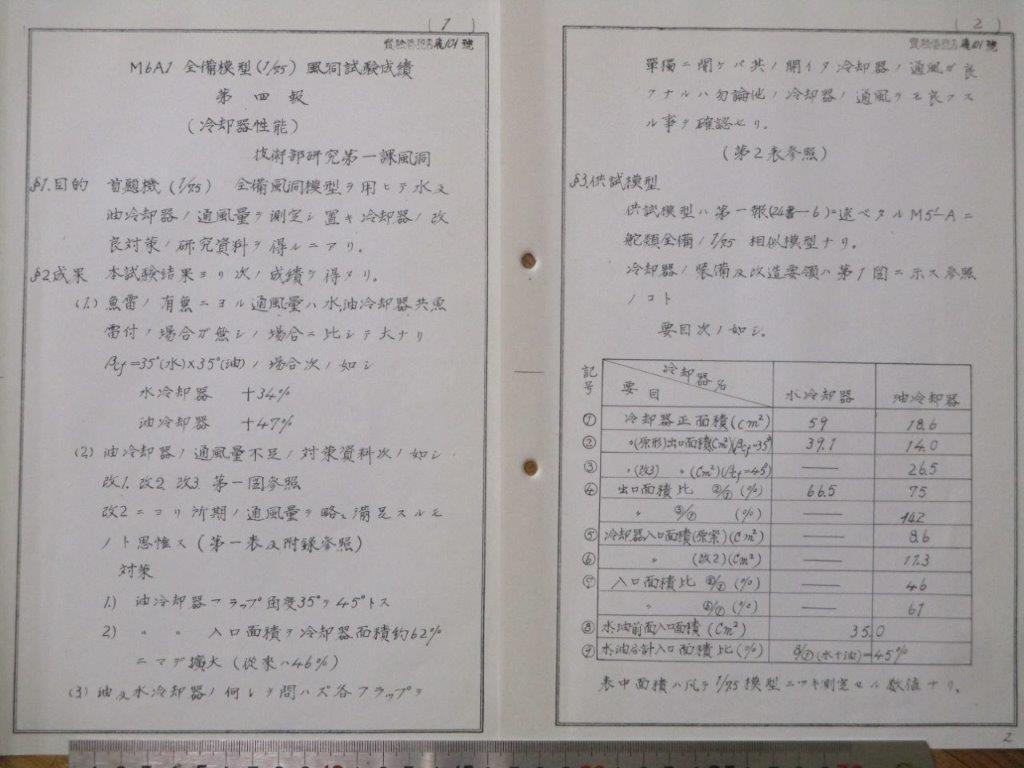 (1)
實驗番號名廠101號
M6A1 全備模型(1/75) 風洞試驗成績
第四報
(冷却器性能)
技術部研究第一課風洞
§1.目的 首題機(1/75) 全備風洞模型ヲ用ヒテ水及
油冷却器ノ通風量ヲ測定シ置キ冷却器ノ改
良対策ノ研究資料ヲ得ルニアリ。
§2.成果 本試験結果ヨリ次ノ成績ヲ得タリ。
(1.) 魚雷ノ有無ニヨル通風量ハ水,油冷却器共魚
雷付ノ場合ガ無シノ場合ニ比シテ大ナリ
βcf=35°(水)×35°(油)ノ場合次ノ如シ
水冷却器 +34%
油冷却器 +47%
(2) 油冷却器ノ通風量不足ノ対策資料次ノ如シ
改1. 改2. 改3. 第一図参照
改2ニヨリ所期ノ通風量ヲ略〻満足スルモ
ノト思惟ス(第一表及附録参照)
対策
1.) 油冷却器フラップ角度35°ヲ45°トス
2) 〃 〃 入口面積ヲ冷却器面積約62%
ニマデ擴大(従来ハ46%)
(3) 油及水冷却器ノ何レヲ問ハズ各フラップヲ
(2)
號
單獨ニ開ケバ其ノ開イタ冷却器ノ通風ガ良
クナルハ勿論他ノ冷却器ノ通風ヲモ良クス
ル事ヲ確認セリ.
(第2表参照)
§3.供試模型
供試模型ハ第一報(24書-6)ニ述ベタルM5-Aニ
舵類全備ノ1/75 相似模型ナリ.
冷却器ノ装備及改造要領ハ第1図ニ示ス参照
ノコト
要目次ノ如シ.
記号 要目 冷却器名 水冷却器 油冷却器
① 冷却器正面積(cm²) 59 18.6
② 〃(原形)出口面積(cm²)(βcf=35°) 39.1 14.0
③ 〃(改3) 〃 (cm²)(βcf=45°) — 26.5
④ 出口面積比 ②/① (%) 66.5 75
〃 ③/① (%) — 142
⑤ 冷却器入口面積(原案)(cm²) — 8.6
⑥ 〃 (改2)(cm²) — 11.3
⑦ 入口面積比 ⑤/① (%) — 46
〃 ⑥/① (%) — 61
⑧ 水,油前面入口面積 (cm²) 35.0
⑨ 水油合計入口面積比(%) ⑧/①(水+油)=45%
表中面積ハ凡テ1/75模型ニツキ測定セル数値ナリ.
2